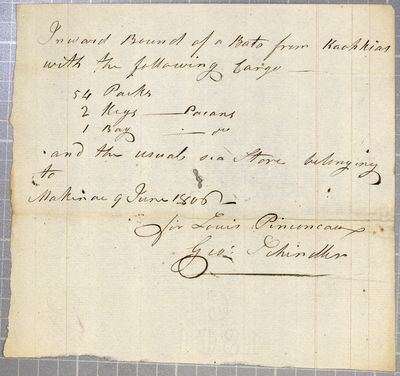 Inward Bound of a Bato from Kaohkias
with the following Cargo
54 Packs
2 Kegs — Pacans
1 Bag — do
and the usual sea Store belonging
to
Makinac 9 June 1806
for Louis Pinconeau
Geo: Schindler